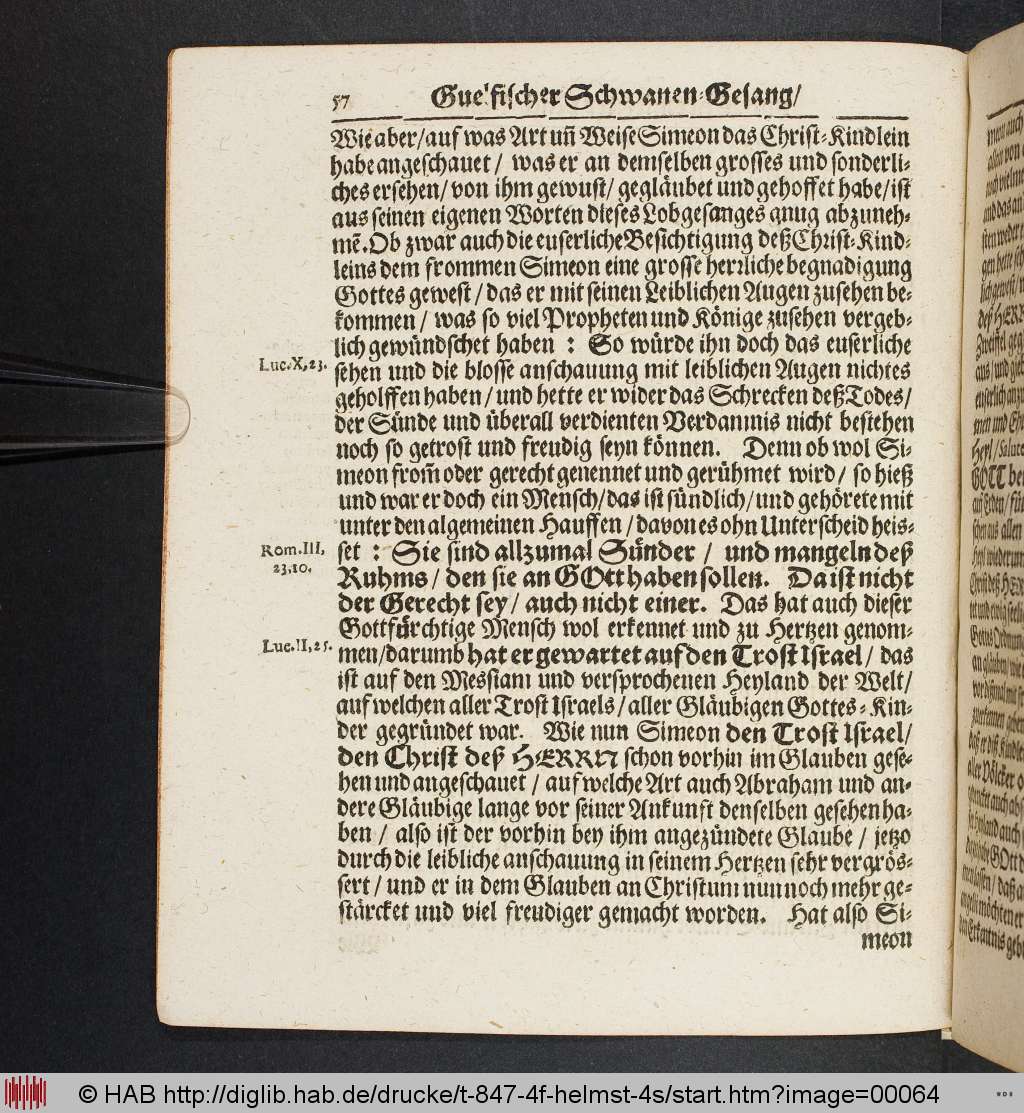 57 Guelfischer Schwanen-Gesang/
Wie aber/ auf was Art uñ Weise Simeon das Christ-Kindlein
habe angeschauet/ was er an demselben grosses und sonderli-
ches ersehen/ von ihm gewust/ gegläubet und gehoffet habe/ ist
aus seinen eigenen Worten dieses Lobgesanges gnug abzuneh-
mẽ. Ob zwar auch die euserliche Besichtigung deß Christ-Kind-
leins dem frommen Simeon eine grosse herrliche begnadigung
Gottes gewest/ das er mit seinen Leiblichen Augen zusehen be-
kommen/ was so viel Propheten und Könige zusehen vergeb-
lich gewündschet haben: So würde ihn doch das euserliche
Luc. X, 23.
sehen und die blosse anschauung mit leiblichen Augen nichtes
geholffen haben/ und hette er wider das Schrecken deß Todes/
der Sünde und überall verdienten Verdamnis nicht bestehen
noch so getrost und freudig seyn können. Denn ob wol Si-
meon from̃ oder gerecht genennet und gerühmet wird/ so hieß
und war er doch ein Mensch/ das ist sündlich/ und gehörete mit
unter den algemeinen Hauffen/ davon es ohn Unterscheid heis-
Rom. III,
23, 10.
set: Sie sind allzumal Sünder/ und mangeln deß
Ruhms/ den sie an GOtt haben sollen. Da ist nicht
der Gerecht sey/ auch nicht einer. Das hat auch dieser
Gottfürchtige Mensch wol erkennet und zu Hertzen genom-
Luc. II, 25.
men/ darumb hat er gewartet auf den Trost Israel/ das
ist auf den Messiam und versprochenen Heyland der Welt/
auf welchen aller Trost Israels/ aller Gläubigen Gottes-Kin-
der gegründet war. Wie nun Simeon den Trost Israel/
den Christ deß HERRN schon vorhin im Glauben gese-
hen und angeschauet/ auf welche Art auch Abraham und an-
dere Gläubige lange vor seiner Ankunft denselben gesehen ha-
ben/ also ist der vorhin bey ihm angezündete Glaube/ jetzo
durch die leibliche anschauung in seinem Hertzen sehr vergrös-
sert/ und er in dem Glauben an Christum nun noch mehr ge-
stärcket und viel freudiger gemacht worden. Hat also Si-
meon
© HAB http://diglib.hab.de/drucke/t-847-4f-helmst-4s/start.htm?image=00064